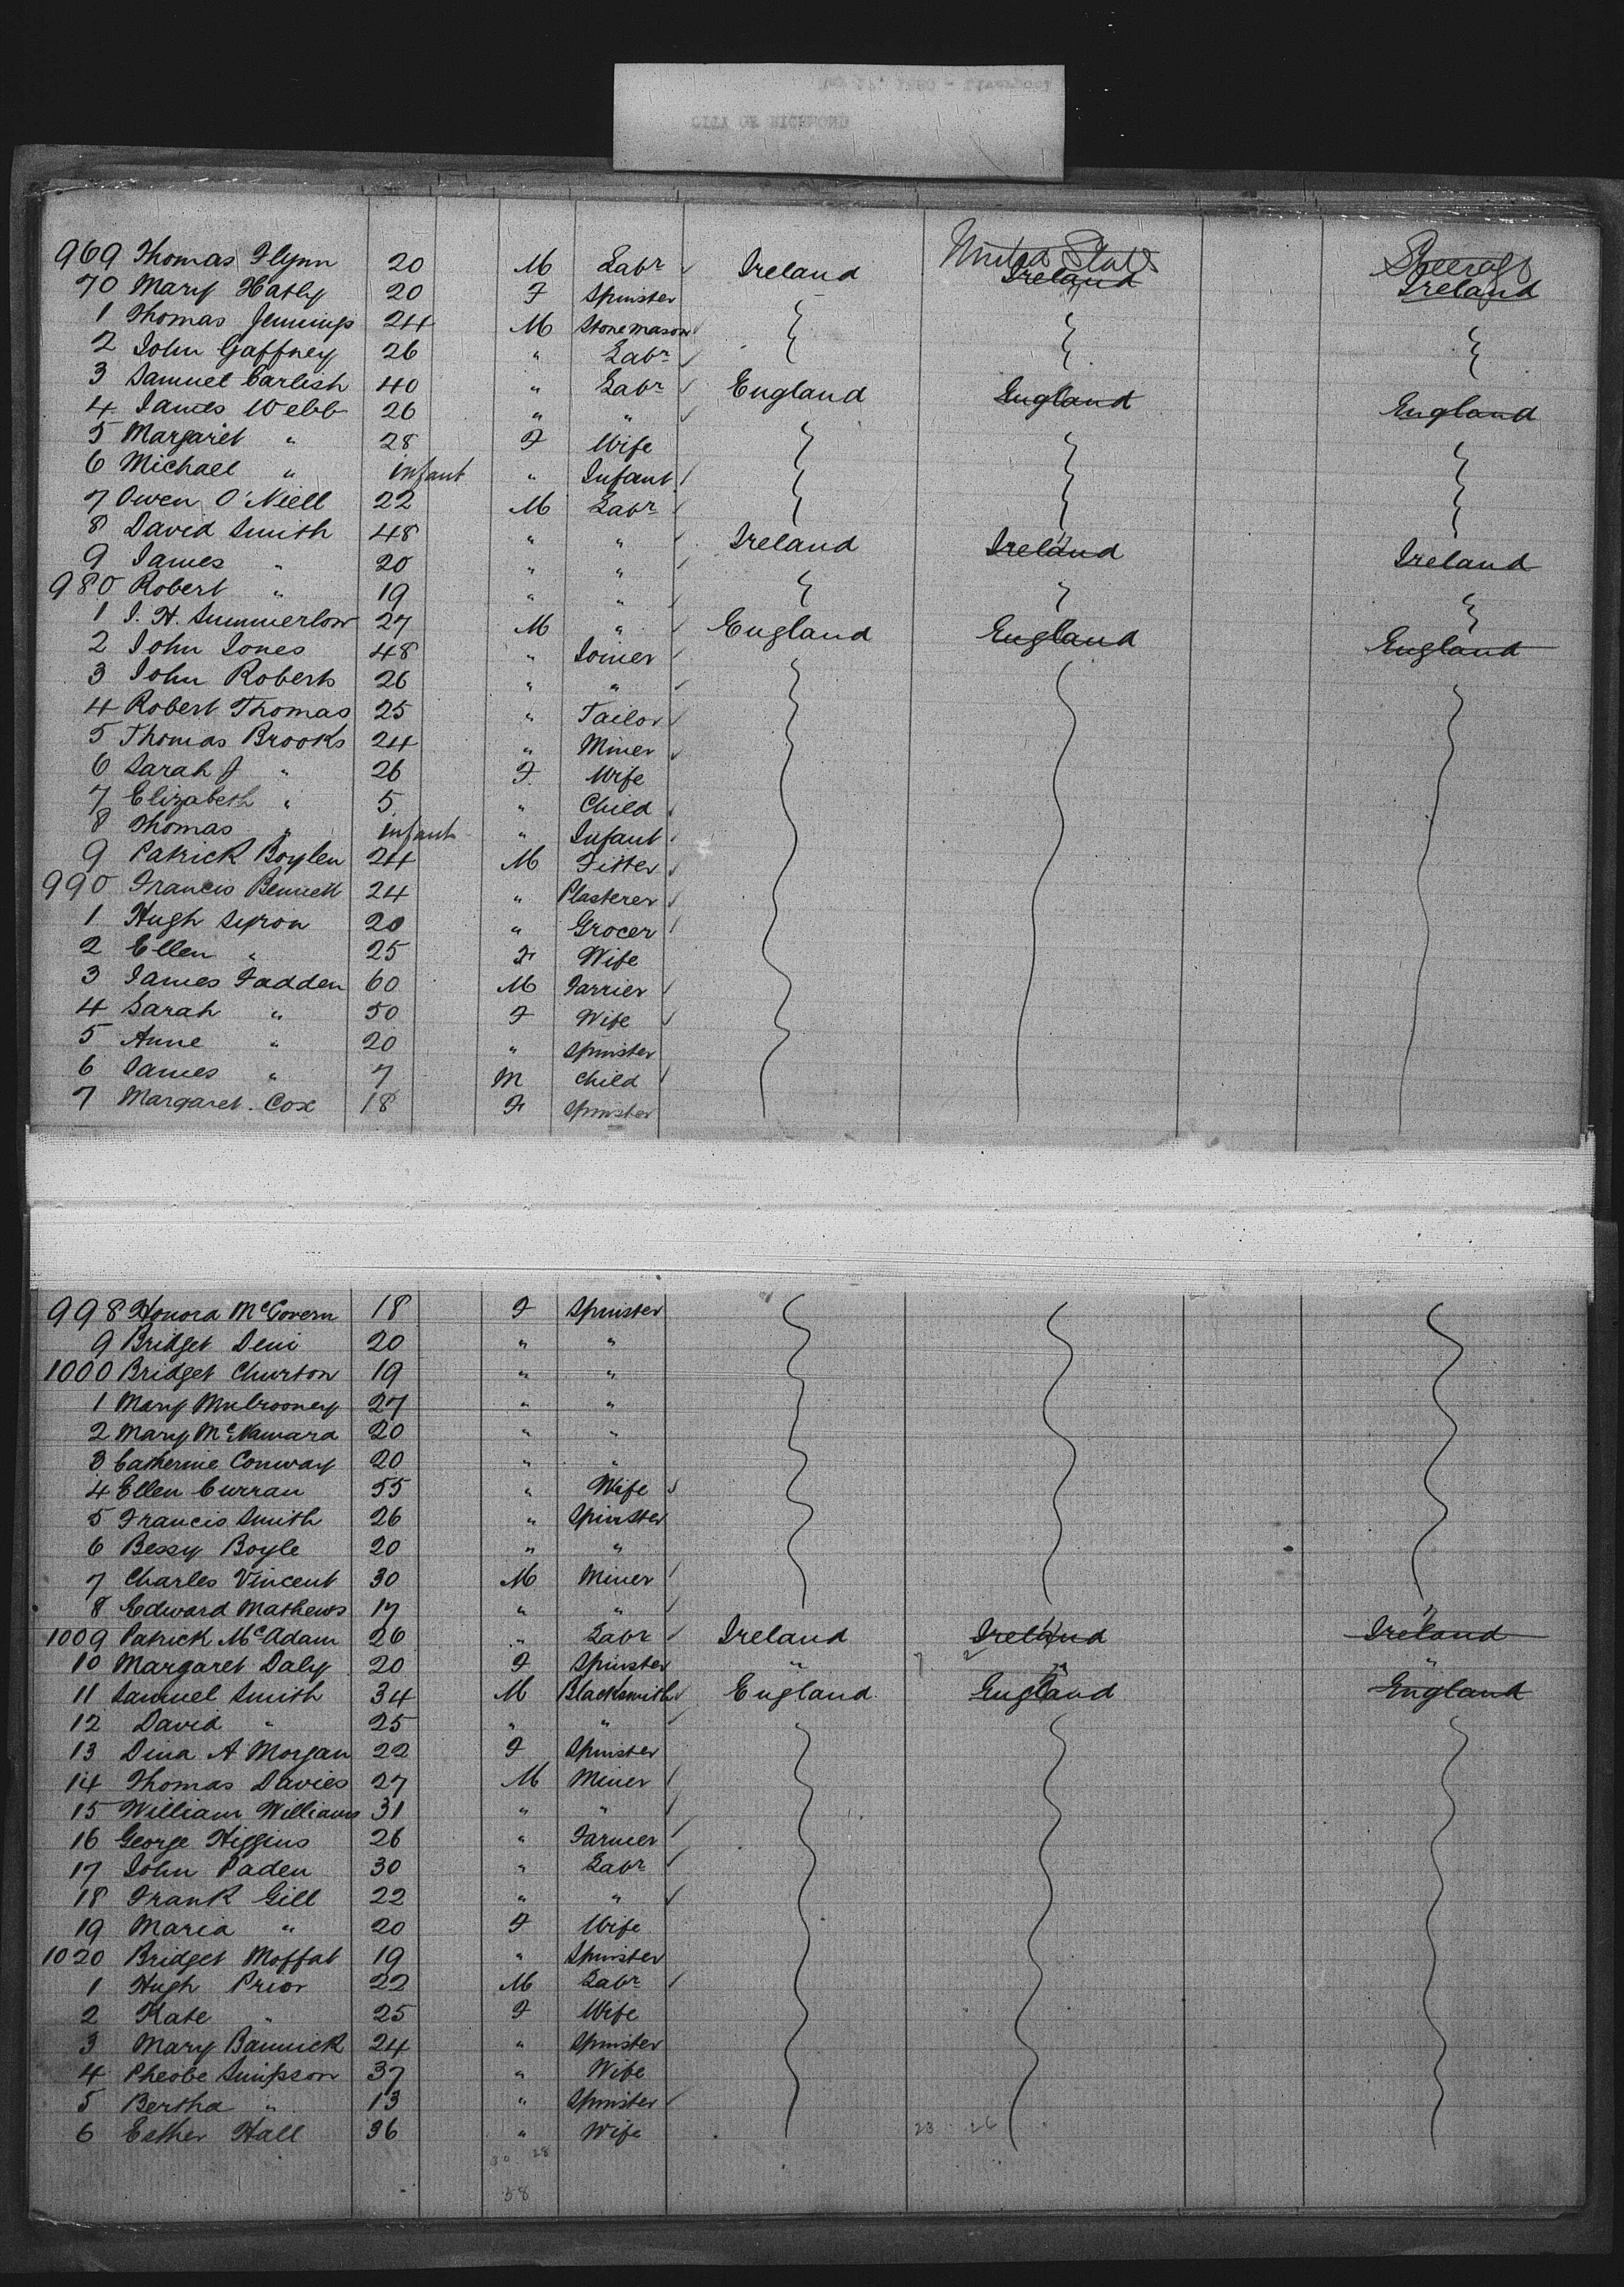 CITY OF RICHMOND
969 Thomas Flynn 20 M Labr Ireland United States Ireland Steerage Ireland
70 Mary Hatly 20 F Spinster
1 Thomas Jennings 24 M Stonemason
2 John Gaffney 26 " Labr
3 Samuel Carlish 40 " Labr England England England
4 James Webb 26 " "
5 Margaret " 28 F Wife
6 Michael " infant " Infant
7 Owen O'Niell 22 M Labr
8 David Smith 48 " " Ireland Ireland Ireland
9 James " 20 " "
980 Robert " 19 " "
1 J. H. Summerlow 27 M " England England England
2 John Jones 48 " Joiner
3 John Roberts 26 " "
4 Robert Thomas 25 " Tailor
5 Thomas Brooks 24 " Miner
6 Sarah J " 26 F. Wife
7 Elizabeth " 5 " Child
8 Thomas " infant " Infant
9 Patrick Boylen 24 M Fitter
990 Francis Bennett 24 " Plasterer
1 Hugh Syron 20 " Grocer
2 Ellen " 25 F Wife
3 James Fadden 60 M Farrier
4 Sarah " 50 F Wife
5 Anne " 20 " Spinster
6 James " 7 M Child
7 Margaret Cox 18 F Spinster
998 Honora McGovern 18 F Spinster
9 Bridget Deni 20 " "
1000 Bridget Churton 19 " "
1 Mary Mulrooney 27 " "
2 Mary McNamara 20 " "
3 Catherine Conway 20 " "
4 Ellen Curran 55 " Wife
5 Francis Smith 26 " Spinster
6 Bessy Boyle 20 " "
7 Charles Vincent 30 M Miner
8 Edward Mathews 17 " "
1009 Patrick McAdam 26 " Labr Ireland Ireland Ireland
10 Margaret Daly 20 F Spinster " " "
11 Samuel Smith 34 M Blacksmith England England England
12 David " 25 " "
13 Dina A Morgan 22 F Spinster
14 Thomas Davies 27 M Miner
15 William Williams 31 " "
16 George Higgins 26 " Farmer
17 John Paden 30 " Labr
18 Frank Gill 22 " "
19 Maria " 20 F Wife
1020 Bridget Moffat 19 " Spinster
1 Hugh Prior 22 M Labr
2 Kate " 25 F Wife
3 Mary Bannick 24 " Spinster
4 Pheobe Simpson 37 " Wife
5 Bertha " 13 " Spinster
6 Esther Hall 36 " Wife 23 26
30 28
58